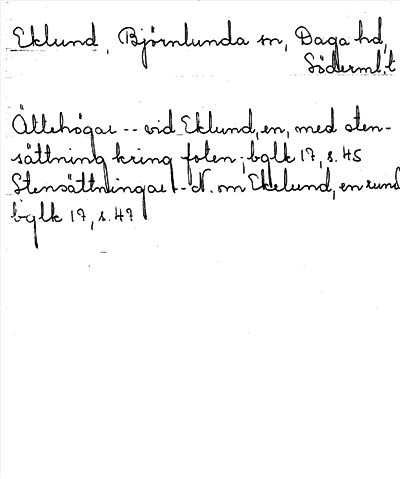 Eklund, Björnlunda sn, Daga hd,
Söderml.
Ättehögar -- vid Eklund, en, med sten-
sättning kring foten; bglk 17, s. 45
Stensättningar -- N. om Ekelund, en rund
bglk 17, s. 47